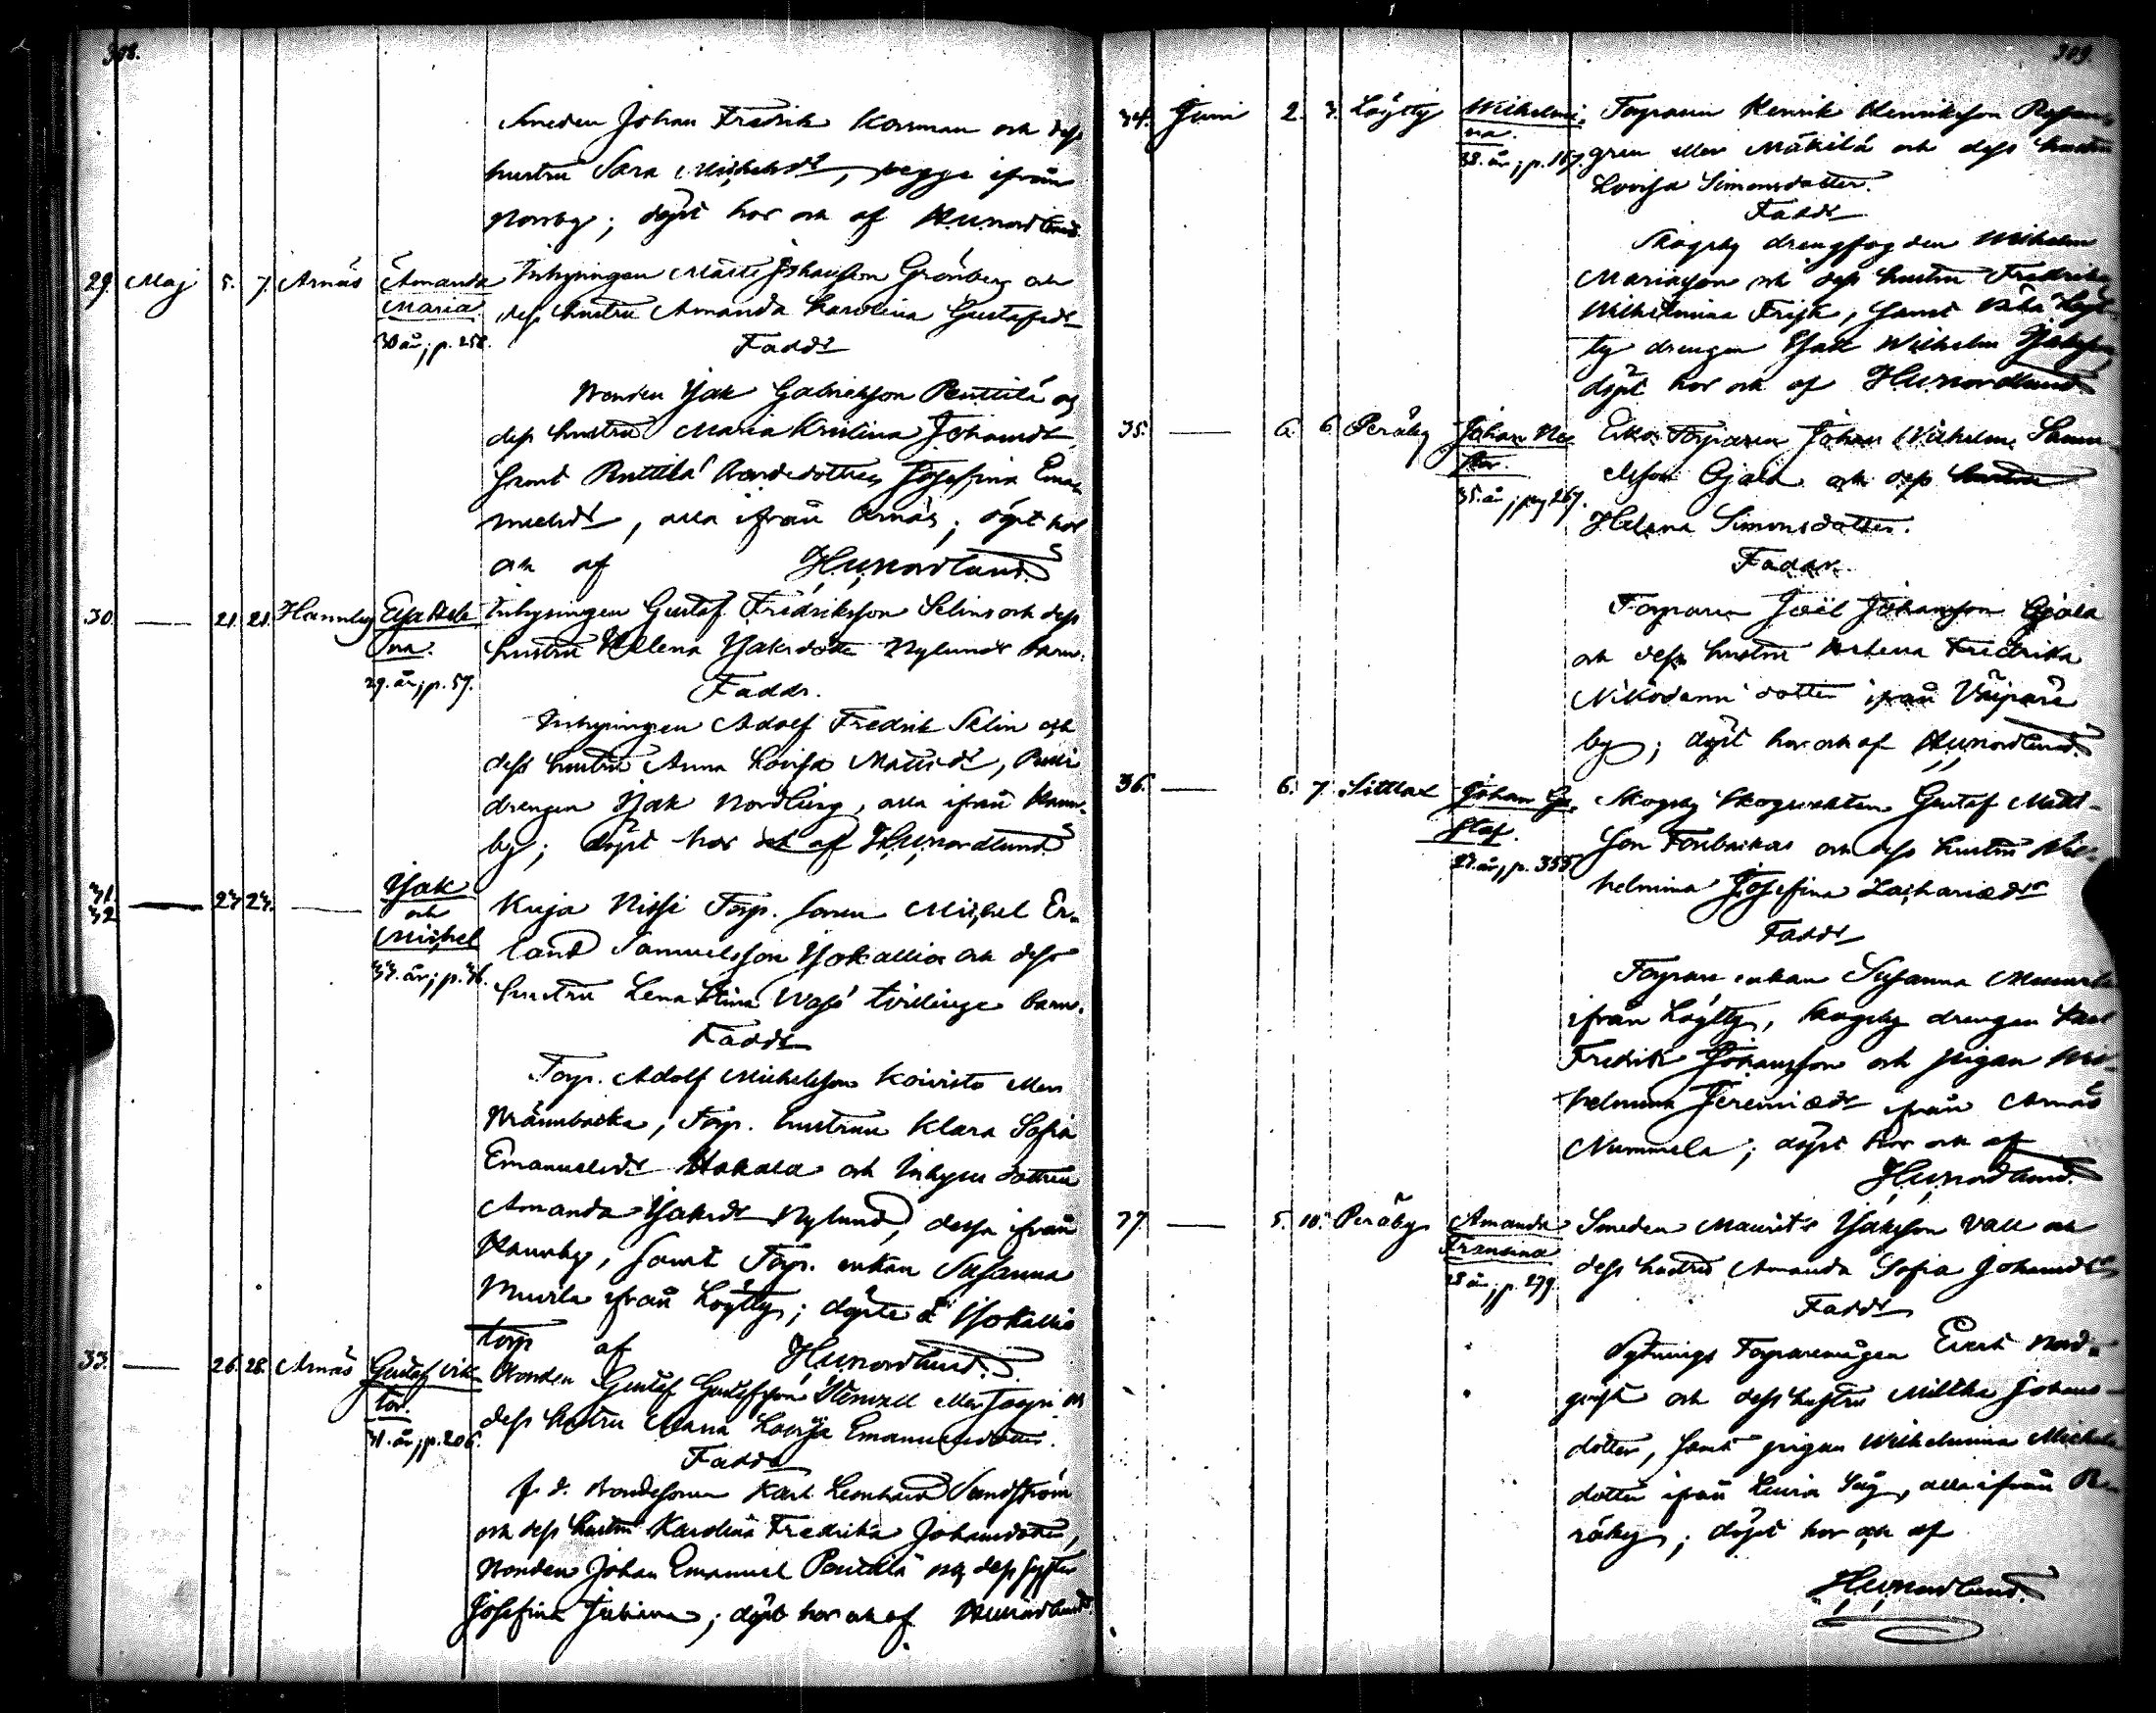 308.
Smeden Johan Fredrik Korsman och dess
hustru Sara Michelsdr, begge ifrån
Norrby; döpt hos och af HUNordlund.
29. Maj 5. 7. Arnäs Amanda Inhysingen Matts Johansson Grönberg och
Maria. dess hustru Amanda Karolina Gustafsdr
30 år; p. 258.
Faddr
Bonden Isak Gabrielsson Penttilä och
dess hustru Maria Kristina Johansdr,
samt Penttilä Bondedottren Josefina Ema-
nuelsdr, alla ifrån Arnäs; döpt hos
och af HUNordlund.
30. — 21. 21. Hannby Elsa Hele- Inhysingen Gustaf Fredriksson Selins och dess
na. hustru Helena Isaksdotter Nylunds barn.
29. år; p. 57.
Faddr.
Inhysingen Adolf Fredrik Selin och
dess hustru Anna Lovisa Mattsdr,
drengen Isak Nordling, alla ifrån Hann-
by; döpt hos och af HUNordlund.
31. 32. — 23. 23. — Isak
och
Michel
33. år; p. 36.
Kuja Nissi Torp. sonen Michel Er-
land Samuelsson Isokallios och dess
hustru Lena Stina tvillinge barn.
Faddr
Torp. Adolf Michelsson Koivisto eller
Brännbacka, Torp. hustrun Klara Sofia
Emanuelsdr Hakala och Inhyses dottren
Amanda Isaksdr Nylund, dessa ifrån
Hannby, samt Torp. enkan Susanna
ifrån Löytty; döpte å Isokallio
torp af HUNordlund.
33. — 26. 28. Arnäs Gustaf Vik- Bonden Gustaf Gustafsson eller och
tor. dess hustru Maria Lovisa Emanuelsdotter.
31. år; p. 206.
Faddr
f. d. Bondesonen Karl Leonhard Sandström
och dess hustru Karolina Fredrika Johansdotter,
Bonden Johan Emanuel Penttilä och dess syster
Josefina Juliana; döpt hos och af HUNordlund.
309.
34. Juni 2. 3. Löytty Wilhelmi- Torparen Henrik Henriksson
na. gren eller Mäkilä och dess hustru
38. år; p. 167.
Lovisa Simonsdotter.
Faddr
Skogsby drengfogden Wilhelm
och dess hustru Fredrika
Wilhelmina Frisk, samt Löyt-
ty drengen Isak Wilhelm Isaksson,
döpt hos och af HUNordlund.
35. — 6. 6. Peräby Johan Ne- Torparen Johan Wilhelm Samu-
stor. elsson Ojala och dess hustru
35. år; pag 267.
Helena Simonsdotter.
Faddr.
Torparen Joël Johansson Ojala
och dess hustru Helena Fredrika
Nikodemi dotter ifrån
by; döpt hos och af HUNordlund.
36. — 6. 7. Sittlax Johan Gu- Skogsby Skogsvakten Gustaf Matts-
staf. son Forsbackas och dess hustru Wil-
27. år; p. 358.
helmina Josefina Zachariædr
Faddr
Torpare enkan Susanna
ifrån Löytty, Skogsby drengen Karl
Fredrik Johansson och pigan Wil-
helmina Jeremiædr ifrån Arnäs
Nummela; döpt hos och af
HUNordlund.
37. — 5. 10. Peräby Amanda Smeden Maurits Isaksson Vall och
Fransina dess hustru Amanda Sofia Johansdr
28 år; p. 279.
Faddr
Torparemågen Evert Nord-
qvist och dess hustru Johans-
dotter, samt pigan Wilhelmina Michels
dotter ifrån Såg, alla ifrån Pe-
räby; döpt hos och af
HUNordlund.